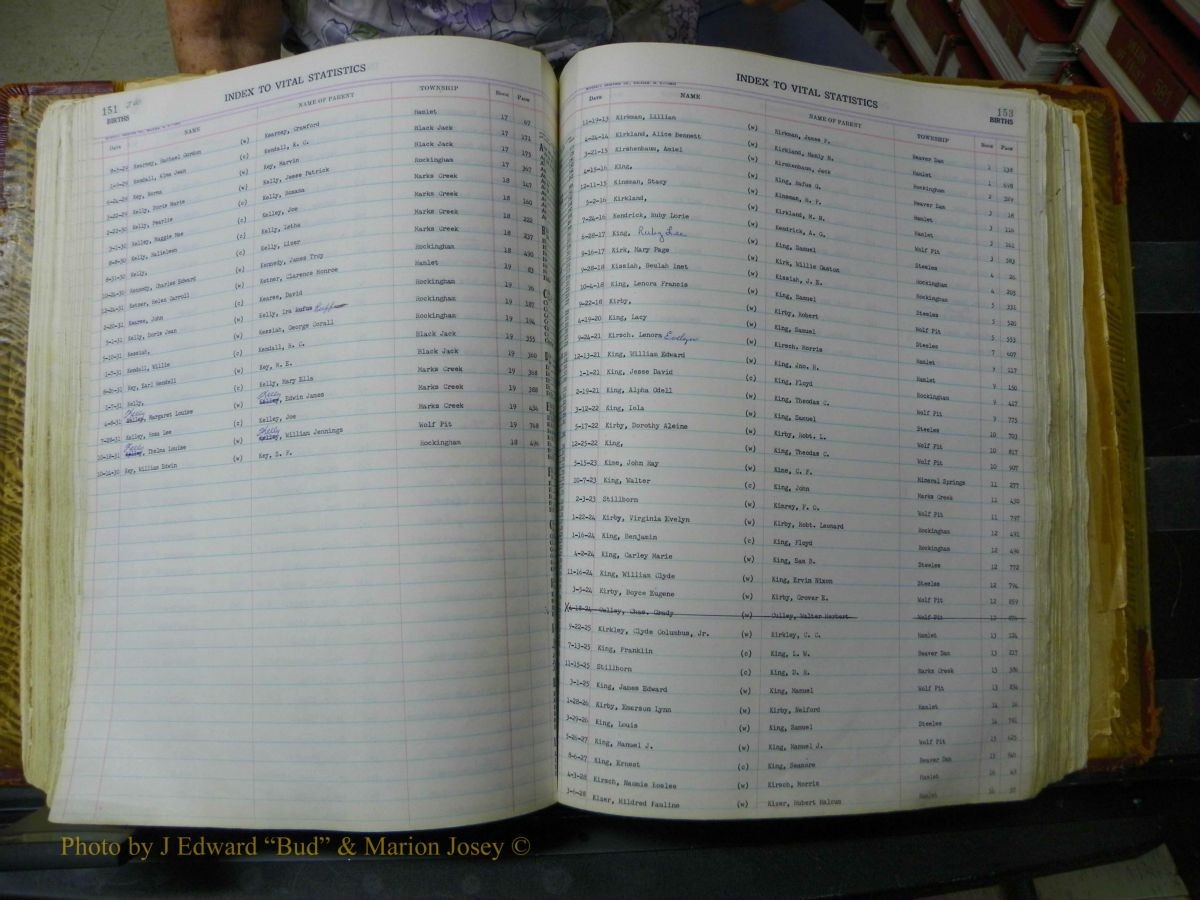 151
BIRTHS
INDEX TO VITAL STATISTICS
Date NAME NAME OF PARENT TOWNSHIP Book Page
Kearney, Rachael Gordon (w) Kearney, Crawford Hamlet 17 67
Kendall, Alma Jean (c) Kendall, R. C. Black Jack 17 171
Key, Norma (w) Key, Marvin Black Jack 17 175
Kelly, Doris Marie (w) Kelly, Jesse Patrick Rockingham 17 367
Kelly, Pearlie (c) Kelly, Rozana Marks Creek 18 147
Kelley, Maggie Mae (c) Kelley, Joe Marks Creek 18 160
Kelly, (c) Kelly, Letha Marks Creek 18 222
Kelly, (c) Kelly, Lizer Marks Creek 18 237
Kennedy, Charles Edward (w) Kennedy, James Troy Rockingham 18 490
Ketner, Helen Carroll (w) Ketner, Clarence Monroe Hamlet 19 83
Kearse, John (c) Kearse, David Rockingham 19
Kelly, Doris Jean (w) Kelly, Ira Rufus Rockingham 19 187
Kessiah, (w) Kessiah, George Corall Rockingham 19 194
Kendall, Willie (c) Kendall, R. C. Black Jack 19 355
Key, Earl Kendell (w) Key, R. E. Black Jack 19 360
Kelly, (c) Kelly, Mary Ella Marks Creek 19 368
Kelley, Margaret Louise (w) Kelley, Edwin James Marks Creek 19 388
Kelley, Rosa Lee (c) Kelley, Joe Marks Creek 19 434
Kelley, Thelma Louise (w) Kelley, William Jennings Wolf Pit 19 748
10-14-30 Key, William Edwin (w) Key, D. F. Rockingham 18 496
INDEX TO VITAL STATISTICS
153
BIRTHS
Date NAME NAME OF PARENT TOWNSHIP Book Page
11-19-13 Kirkman, Lillian (w) Kirkman, James P. Beaver Dam 1 138
4-24-14 Kirkland, Alice Bennett (w) Kirkland, Manly H. Hamlet 1 698
3-21-15 Kirshenbaum, Asiel (w) Kirshenbaum, Jack Rockingham 2 327
4-15-16 King, (w) King, Rufus G. Beaver Dam 3 18
12-11-15 Kinsman, Stacy (w) Kinsman, R. F. Hamlet 3 116
5-2-16 Kirkland, (w) Kirkland, M. H. Hamlet 3 161
7-24-16 Kendrick, Ruby Lorie (w) Kendrick, A. G. Wolf Pit 3 583
6-28-17 King, Ruby Lee (w) King, Samuel Steeles 4 26
9-16-17 Kirk, Mary Page (w) Kirk, Willis Gaston Rockingham 4 205
9-28-18 Kissiah, Beulah Inet (w) Kissiah, J. E. Rockingham 5 331
10-4-18 King, Lenora Francis (w) King, Samuel Steeles 5 520
9-22-18 Kirby, (w) Kirby, Robert Wolf Pit 5 553
4-19-20 King, Lacy (w) King, Samuel Steeles 7 407
9-24-21 Kirsch, Lenora Evelyn (w) Kirsch, Morris Hamlet 9 117
12-13-21 King, William Edward (w) King, Jno. H. Hamlet 9 150
1-1-21 King, Jesse David (c) King, Floyd Rockingham 9 447
2-19-21 King, Alpha Odell (w) King, Theodas C. Wolf Pit 9 775
3-12-22 King, Iola (w) King, Samuel Steeles 10 703
5-17-22 Kirby, Dorothy Aleine (w) Kirby, Robt. L. Wolf Pit 10 817
12-25-22 King, (w) King, Theodas C. Wolf Pit 10 907
5-15-23 Kine, John Ray (w) Kine, C. F. Mineral Springs 11 277
10-7-23 King, Walter (c) King, John Marks Creek 12 430
2-3-23 Stillborn (w) Kinrey, F. O. Wolf Pit 11 797
1-22-24 Kirby, Virginia Evelyn (w) Kirby, Robt. Leonard Rockingham 12 491
1-16-24 King, Benjamin (c) King, Floyd Rockingham 12 494
4-2-24 King, Carley Marie (w) King, Sam D. Steeles 12 772
11-16-24 King, William Clyde (w) King, Ervin Nixon Steeles 12 794
3-5-24 Kirby, Boyce Eugene (w) Kirby, Grover E. Wolf Pit 12 859
4-18-24 Culley, Chas. Grady (w) Culley, Walter Herbert Wolf Pit 12
9-22-25 Kirkley, Clyde Columbus, Jr. (w) Kirkley, C. C. Hamlet 13 124
7-13-25 King, Franklin (c) King, L. W. Beaver Dam 13 217
11-15-25 Stillborn (c) King, D. H. Marks Creek 13
3-1-25 King, James Edward (w) King, Manuel Wolf Pit 13 834
1-28-26 Kirby, Emerson Lynn (w) Kirby, Welford Hamlet 14
3-29-26 King, Louis (w) King, Samuel Steeles 14
5-26-27 King, Manuel J. (w) King, Manuel J. Wolf Pit 15
8-6-27 King, Ernest (c) King, Seamore Beaver Dam 15
4-3-28 Kirsch, Mannie Roslee (w) Kirsch, Morris Hamlet 16
3-6-28 Kizer, Mildred Pauline (w) Kizer, Hubert Malcum Hamlet 16
Photo by J Edward “Bud” & Marion Josey ©